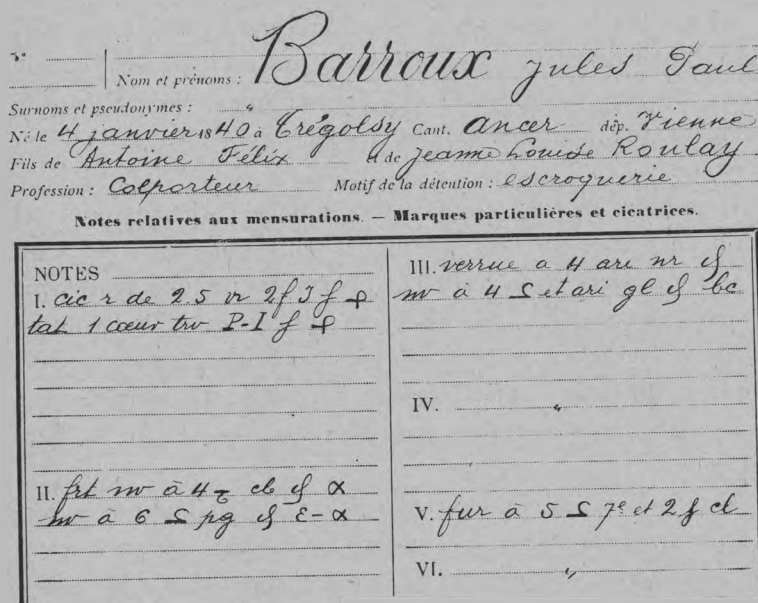 Nom et prénoms : Barroux Jules Paul
Surnoms et pseudonymes : "
Né le 4 janvier 1840 à Trégolsy Cant. Ancer dép. Vienne
Fils de Antoine Félix et de Jeanne Louise Roulay
Profession : Colporteur Motif de la détention : escroquerie
Notes relatives aux mensurations. — Marques particulières et cicatrices.
NOTES
I. cic r de 2.5 vr 2f 3 f
tat 1 cœur trv P-I f
II. frt nv à 4 cb α
nv à 6 pg ε-α
III. verrue a 4 are nr
nv à 4 et ari gl bc
IV. "
V. fur à 5 7e et 2 f cl
VI. "